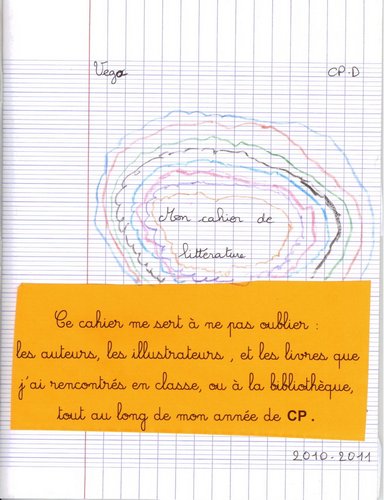 Vega CP.D
Mon cahier de
littérature
Ce cahier me sert à ne pas oublier :
les auteurs, les illustrateurs , et les livres que
j'ai rencontrés en classe, ou à la bibliothèque,
tout au long de mon année de CP .
2010-2011